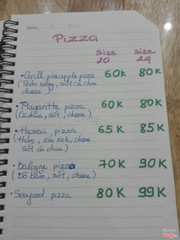 Pizza
Size 20 Size 24
• Grill pineapple pizza 60K 80K
(Thơm nướng, sốt cà chua
cheese)
• Magaritta pizza 60K 80K
(Cà chua, sốt, cheese)
• Hawaii pizza 65K 85K
(thơm, xúc xích, cheese
sốt cà chua)
• Bologne pizza 70K 90K
(Bò bằm, sốt, cheese)
• Seafood pizza 80K 99K